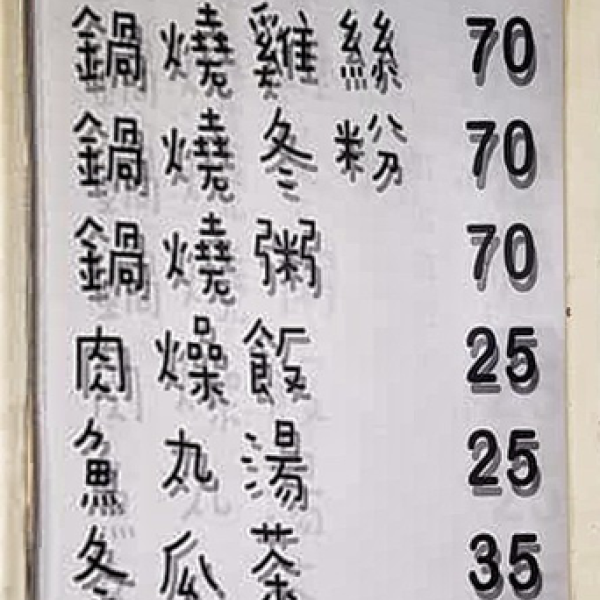 鍋燒雞絲 70
鍋燒冬粉 70
鍋燒粥 70
肉燥飯 25
魚丸湯 25
冬瓜茶 35